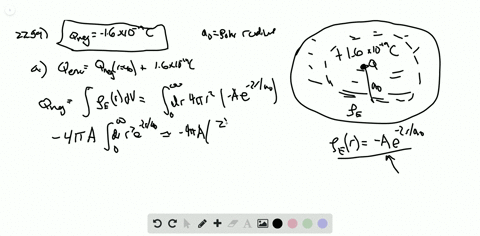 22.59) Qneg = -1.6×10⁻¹⁹C a₀ = Bohr radius
a) Qenc = Qneg(r<a₀) + 1.6×10⁻¹⁹C
Qneg = ∫ρE(r)dV = ∫₀^∞ dr 4πr² (-Ae^(-2r/a₀))
-4πA ∫₀^∞ dr r² e^(-2r/a₀) = -4πA( 2
+1.6×10⁻¹⁹C
Q
a₀
ρE
ρE(r) = -Ae^(-2r/a₀)